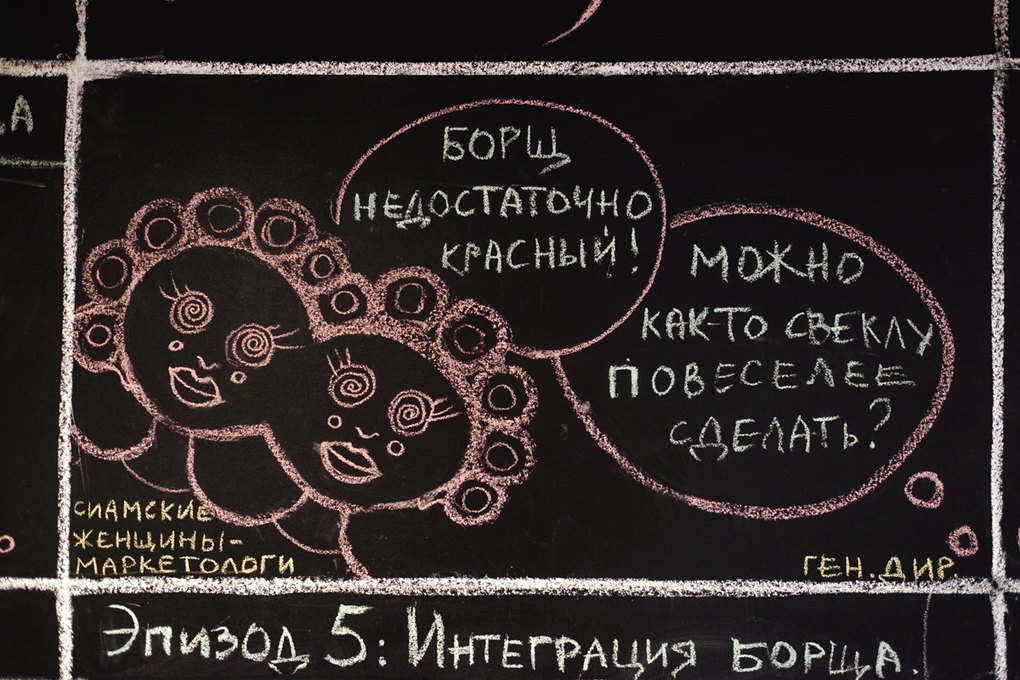 БОРЩ
НЕДОСТАТОЧНО
КРАСНЫЙ!
МОЖНО
КАК-ТО СВЕКЛУ
ПОВЕСЕЛЕЕ
СДЕЛАТЬ?
СИАМСКИЕ
ЖЕНЩИНЫ-
МАРКЕТОЛОГИ
ГЕН.ДИР.
ЭПИЗОД 5: ИНТЕГРАЦИЯ БОРЩА.